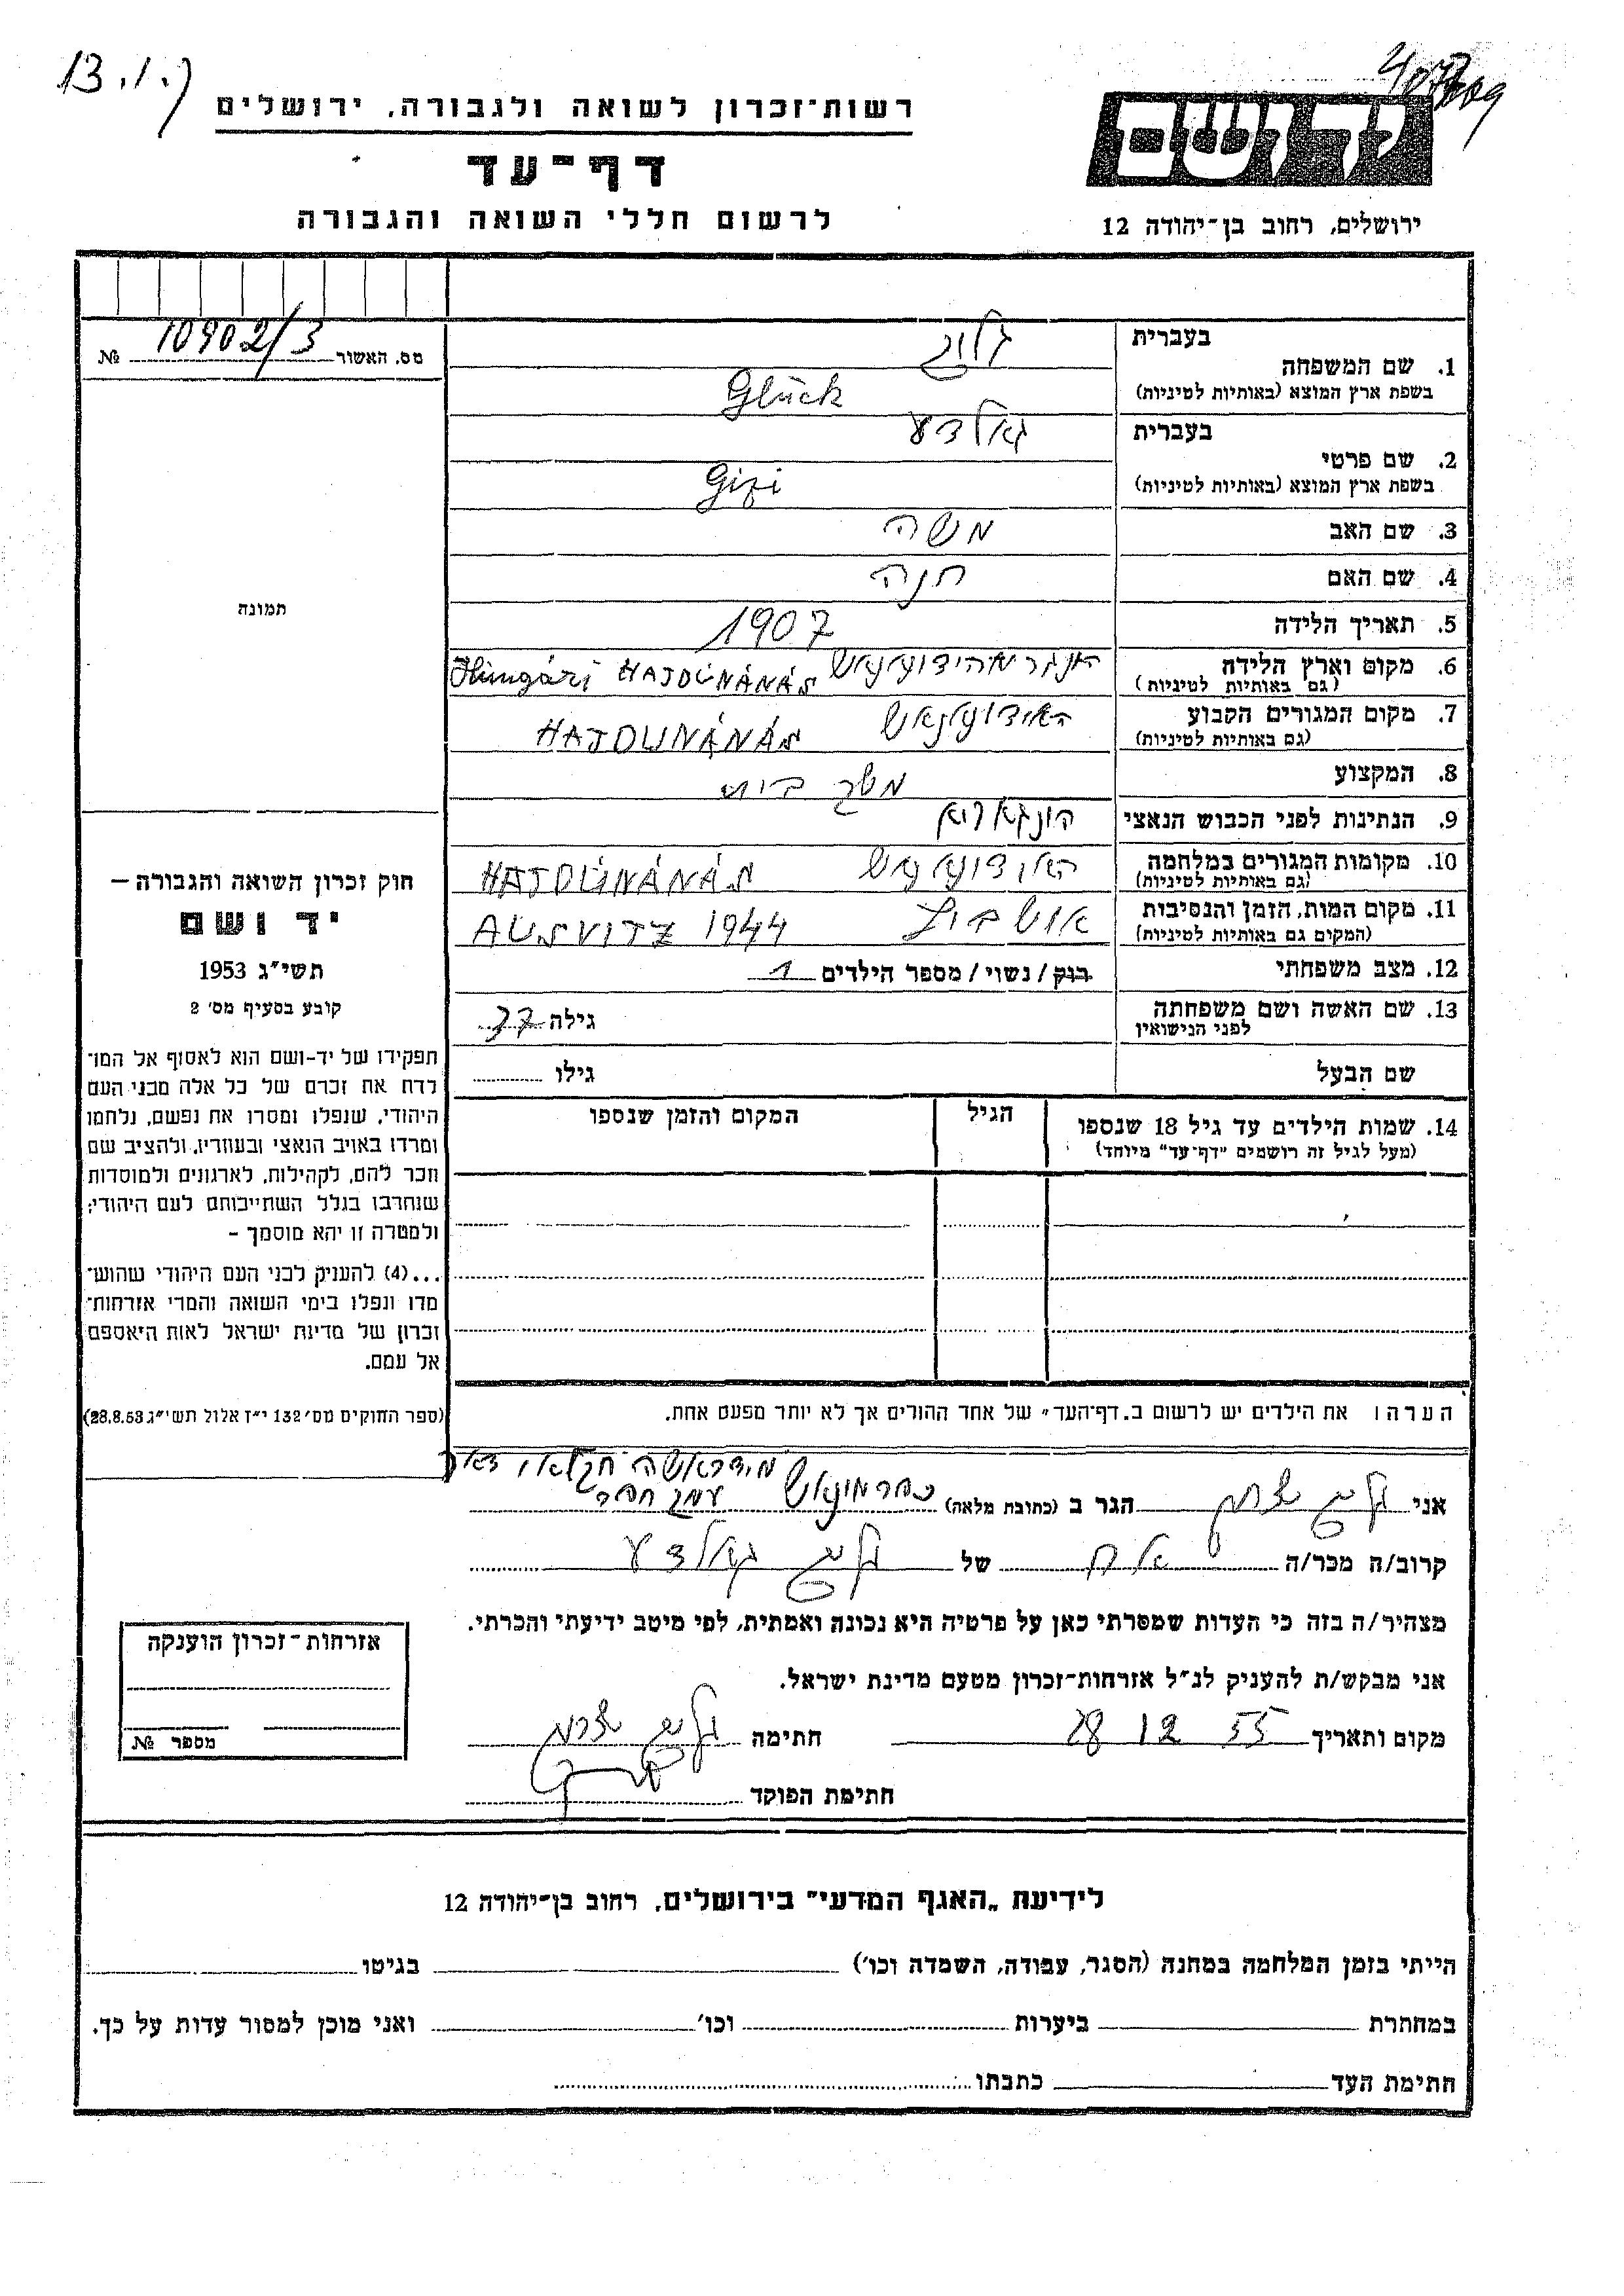 13.1.7
רשות־זכרון לשואה ולגבורה, ירושלים
דף־עד
לרשום חללי השואה והגבורה
יד ושם
ירושלים, רחוב בן־יהודה 12
מס. האשור 10902/3 №
תמונה
חוק זכרון השואה והגבורה —
יד ושם
תשי״ג 1953
קובע בסעיף מס׳ 2
תפקידו של יד-ושם הוא לאסוף אל המו־
לדת את זכרם של כל אלה מבני העם
היהודי, שנפלו ומסרו את נפשם, נלחמו
ומרדו באויב הנאצי ובעוזריו, ולהציב שם
וזכר להם, לקהילות, לארגונים ולמוסדות
שנחרבו בגלל השתייכותם לעם היהודי;
ולמטרה זו יהא מוסמך –
...(4) להעניק לבני העם היהודי שהוש־
מדו ונפלו בימי השואה והמרי אזרחות־
זכרון של מדינת ישראל לאות היאספם
אל עמם.
(ספר החוקים מס׳ 132 י״ז אלול תשי״ג 28.8.53)
בעברית
1. שם המשפחה
בשפת ארץ המוצא (באותיות לטיניות) Glück
בעברית
2. שם פרטי
בשפת ארץ המוצא (באותיות לטיניות) Gizi
3. שם האב משה
4. שם האם חנה
5. תאריך הלידה 1907
6. מקום וארץ הלידה HAJDÚNÁNÁS Hungári
(גם באותיות לטיניות)
7. מקום המגורים הקבוע
(גם באותיות לטיניות) HAJDUNÁNÁS
8. המקצוע משק בית
9. הנתינות לפני הכבוש הנאצי
10. מקומות המגורים במלחמה
(גם באותיות לטיניות) HAJDÚNÁNÁS
11. מקום המות, הזמן והנסיבות
(המקום גם באותיות לטיניות) AUSVITZ 1944
12. מצב משפחתי רוק / נשוי / מספר הילדים 1
13. שם האשה ושם משפחתה גילה 37
לפני הנישואין
שם הבעל גילו
14. שמות הילדים עד גיל 18 שנספו הגיל המקום והזמן שנספו
(מעל לגיל זה רושמים "דף־עד" מיוחד)
הערה ו את הילדים יש לרשום ב„דף־העד״ של אחד ההורים אך לא יותר מפעם אחת.
עמק חפר
אני הגר ב (כתובת מלאה)
קרוב/ה מכר/ה אח של
מצהיר/ה בזה כי העדות שמסרתי כאן על פרטיה היא נכונה ואמתית, לפי מיטב ידיעתי והכרתי.
אני מבקש/ת להעניק לנ״ל אזרחות־זכרון מטעם מדינת ישראל.
מקום ותאריך 28 12 55 חתימה
חתימת הפוקד
אזרחות־זכרון הוענקה
מספר №
לידיעת „האגף המדעי״ בירושלים, רחוב בן־יהודה 12
הייתי בזמן המלחמה במחנה (הסגר, עבודה, השמדה וכו׳) בגיטו
במחתרת ביערות וכו׳ ואני מוכן למסור עדות על כך.
חתימת העד כתבתו